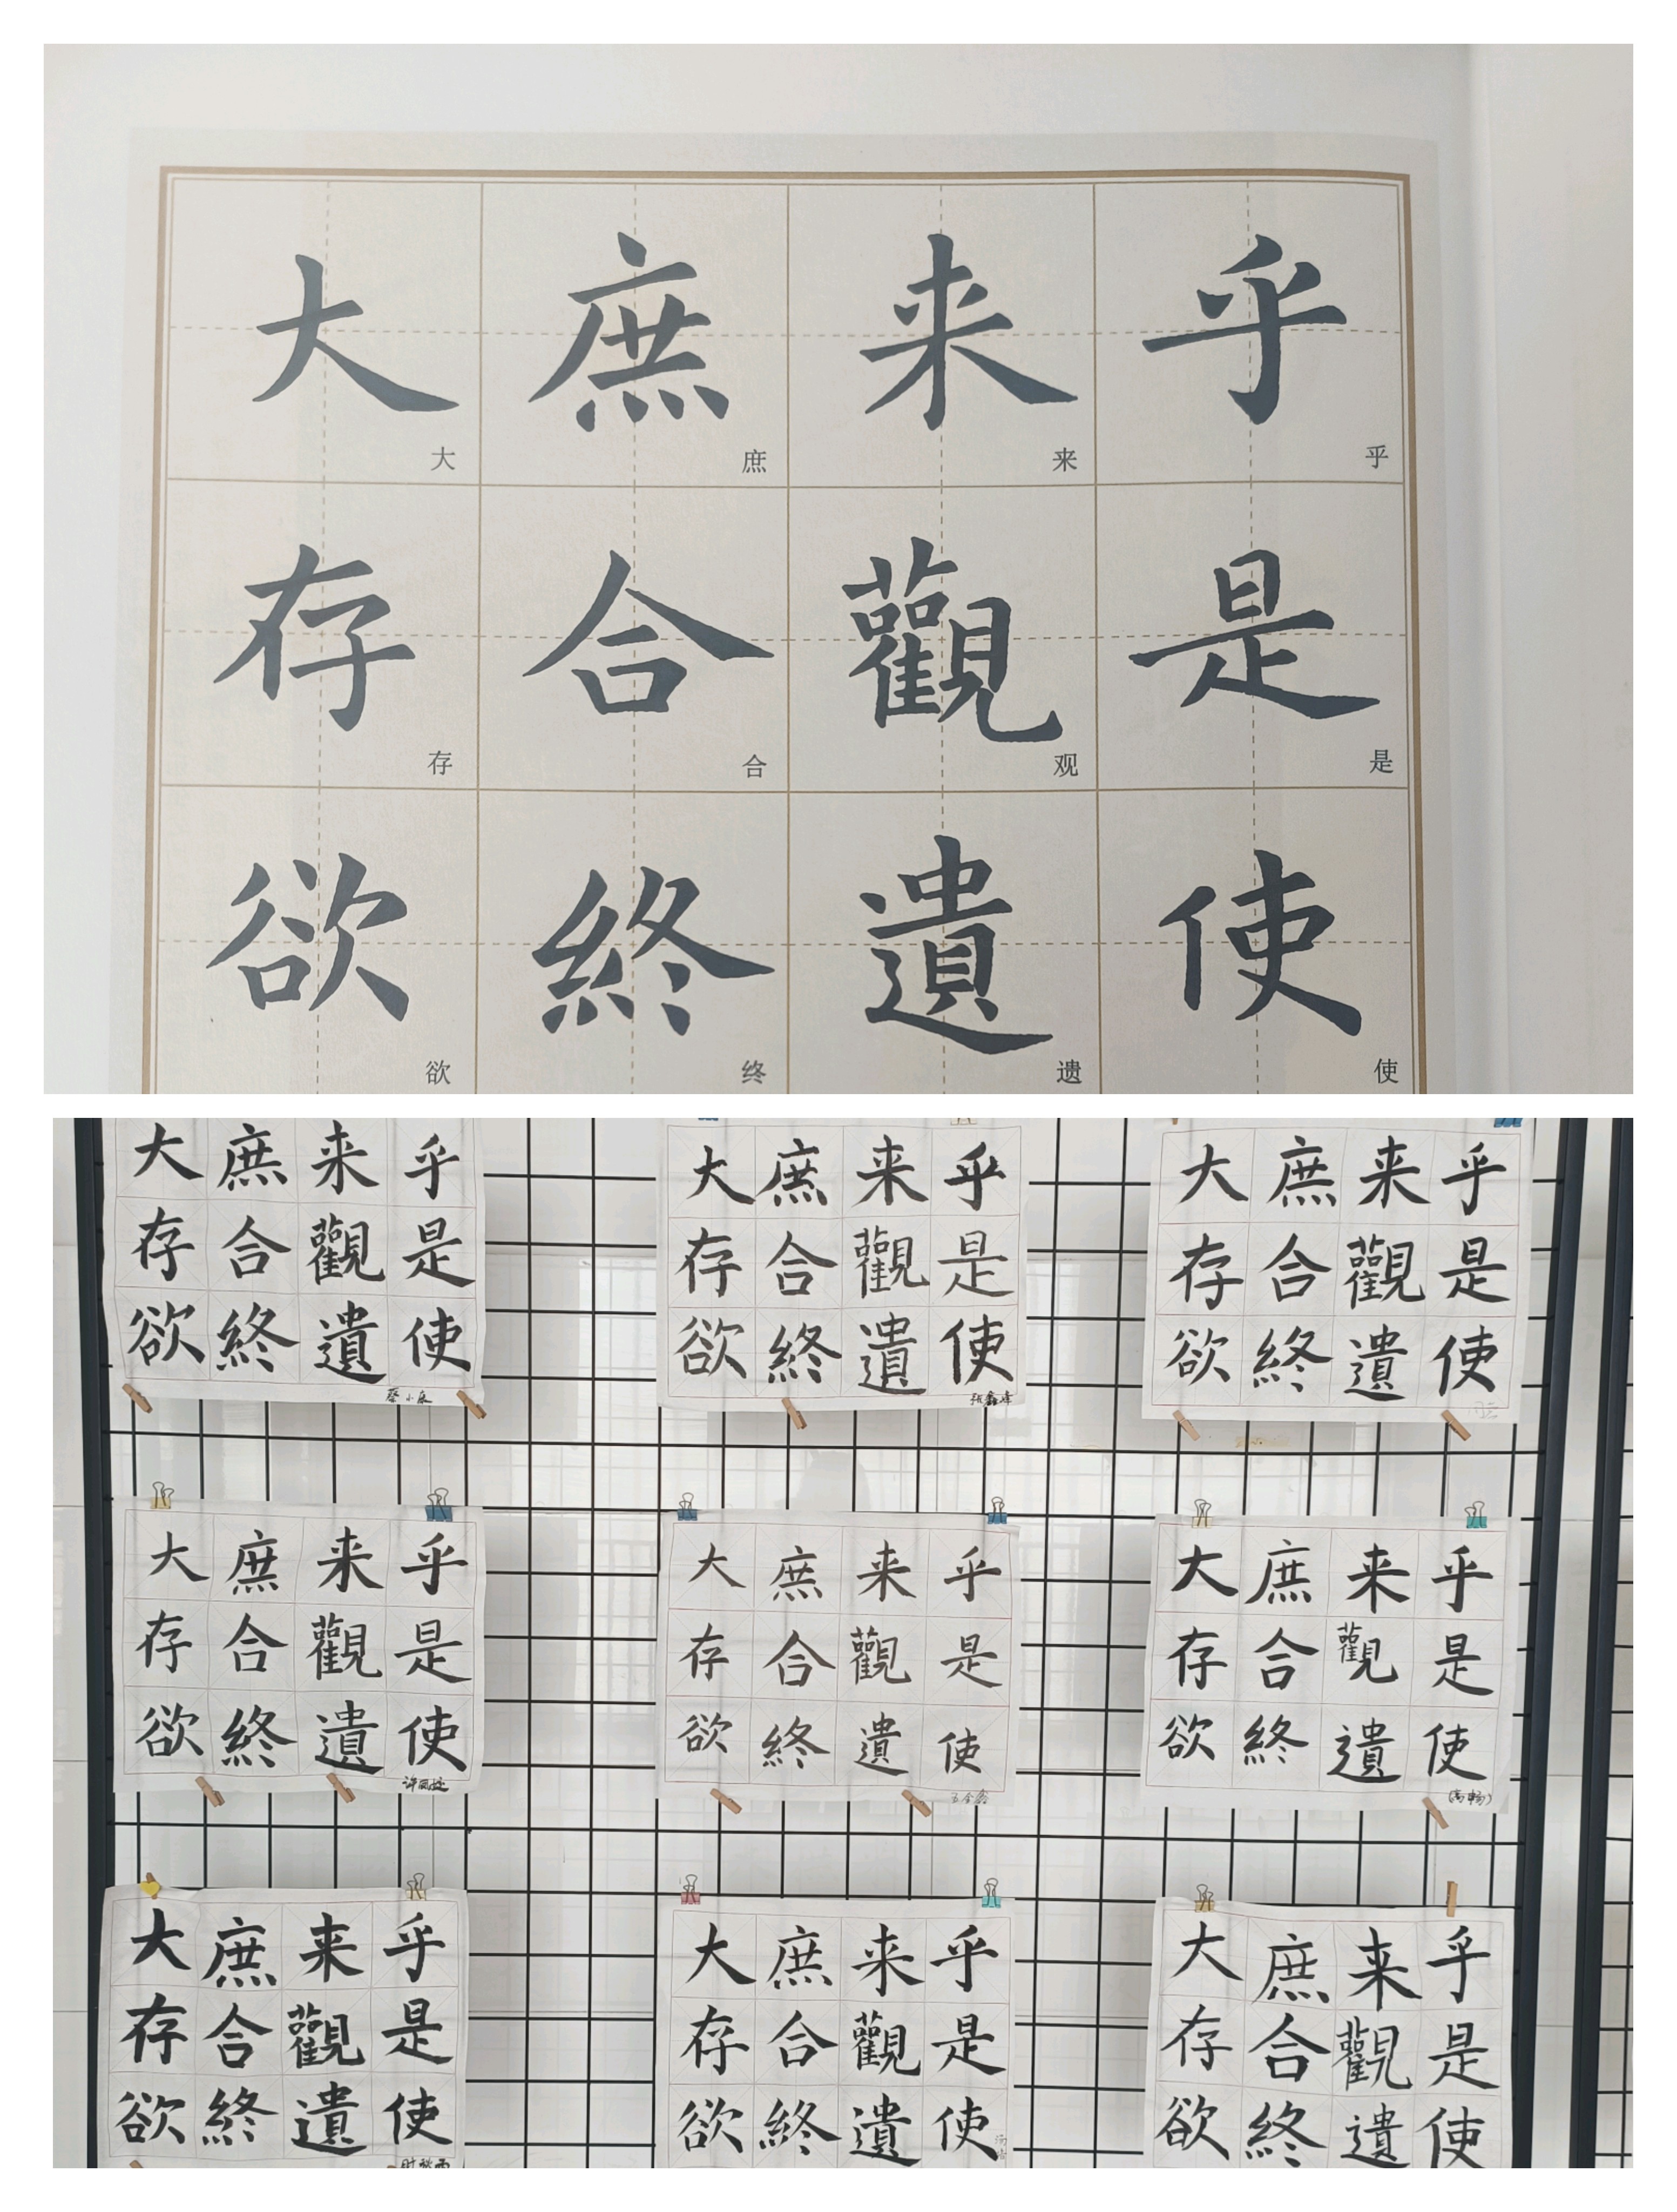 大 庶 来 乎
大 庶 来 乎
存 合 觀 是
存 合 观 是
欲 終 遺 使
欲 终 遗 使
大 庶 来 乎
存 合 觀 是
欲 終 遺 使
大 庶 来 乎
存 合 觀 是
欲 終 遺 使
大 庶 来 乎
存 合 觀 是
欲 終 遺 使
大 庶 来 乎
存 合 觀 是
欲 終 遺 使
大 庶 来 乎
存 合 觀 是
欲 終 遺 使
大 庶 来 乎
存 合 觀 是
欲 終 遺 使
(高畅)
大 庶 来 乎
存 合 觀 是
欲 終 遺 使
大 庶 来 乎
存 合 觀 是
欲 終 遺 使
大 庶 来 乎
存 合 觀 是
欲 終 遺 使